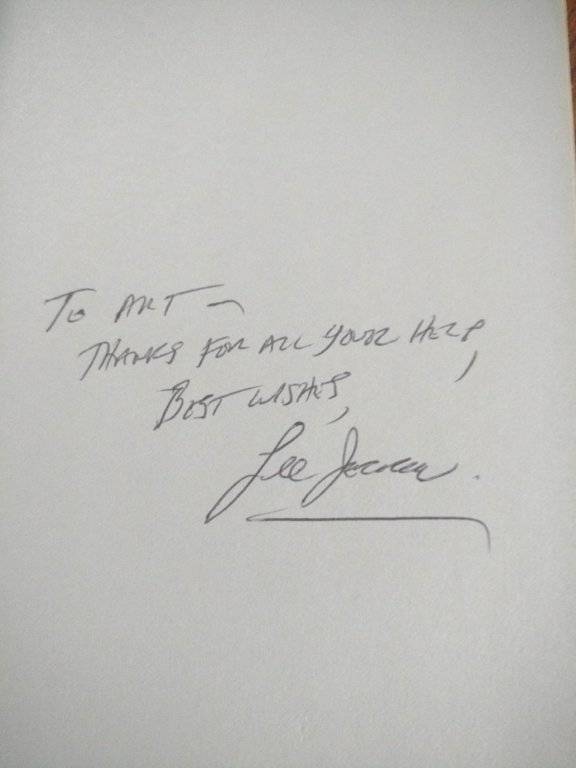 TO ART —
THANKS FOR ALL YOUR HELP,
BEST WISHES,
Lee